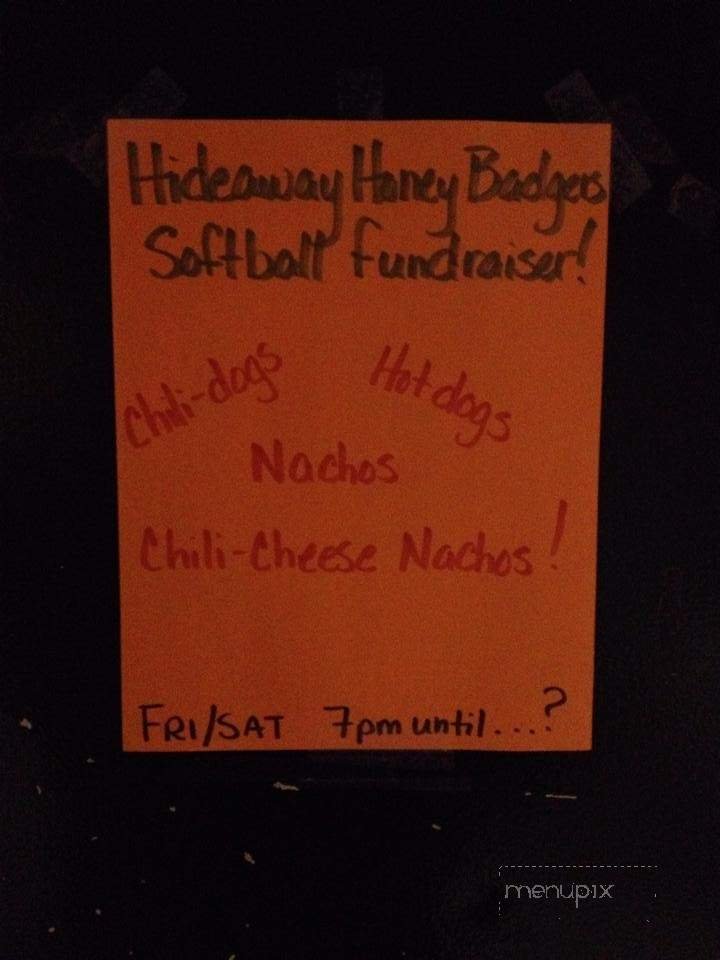 Hideaway Honey Badgers
Softball fundraiser!
Chili-dogs Hot dogs
Nachos
Chili-Cheese Nachos!
FRI/SAT 7pm until....?
menupix